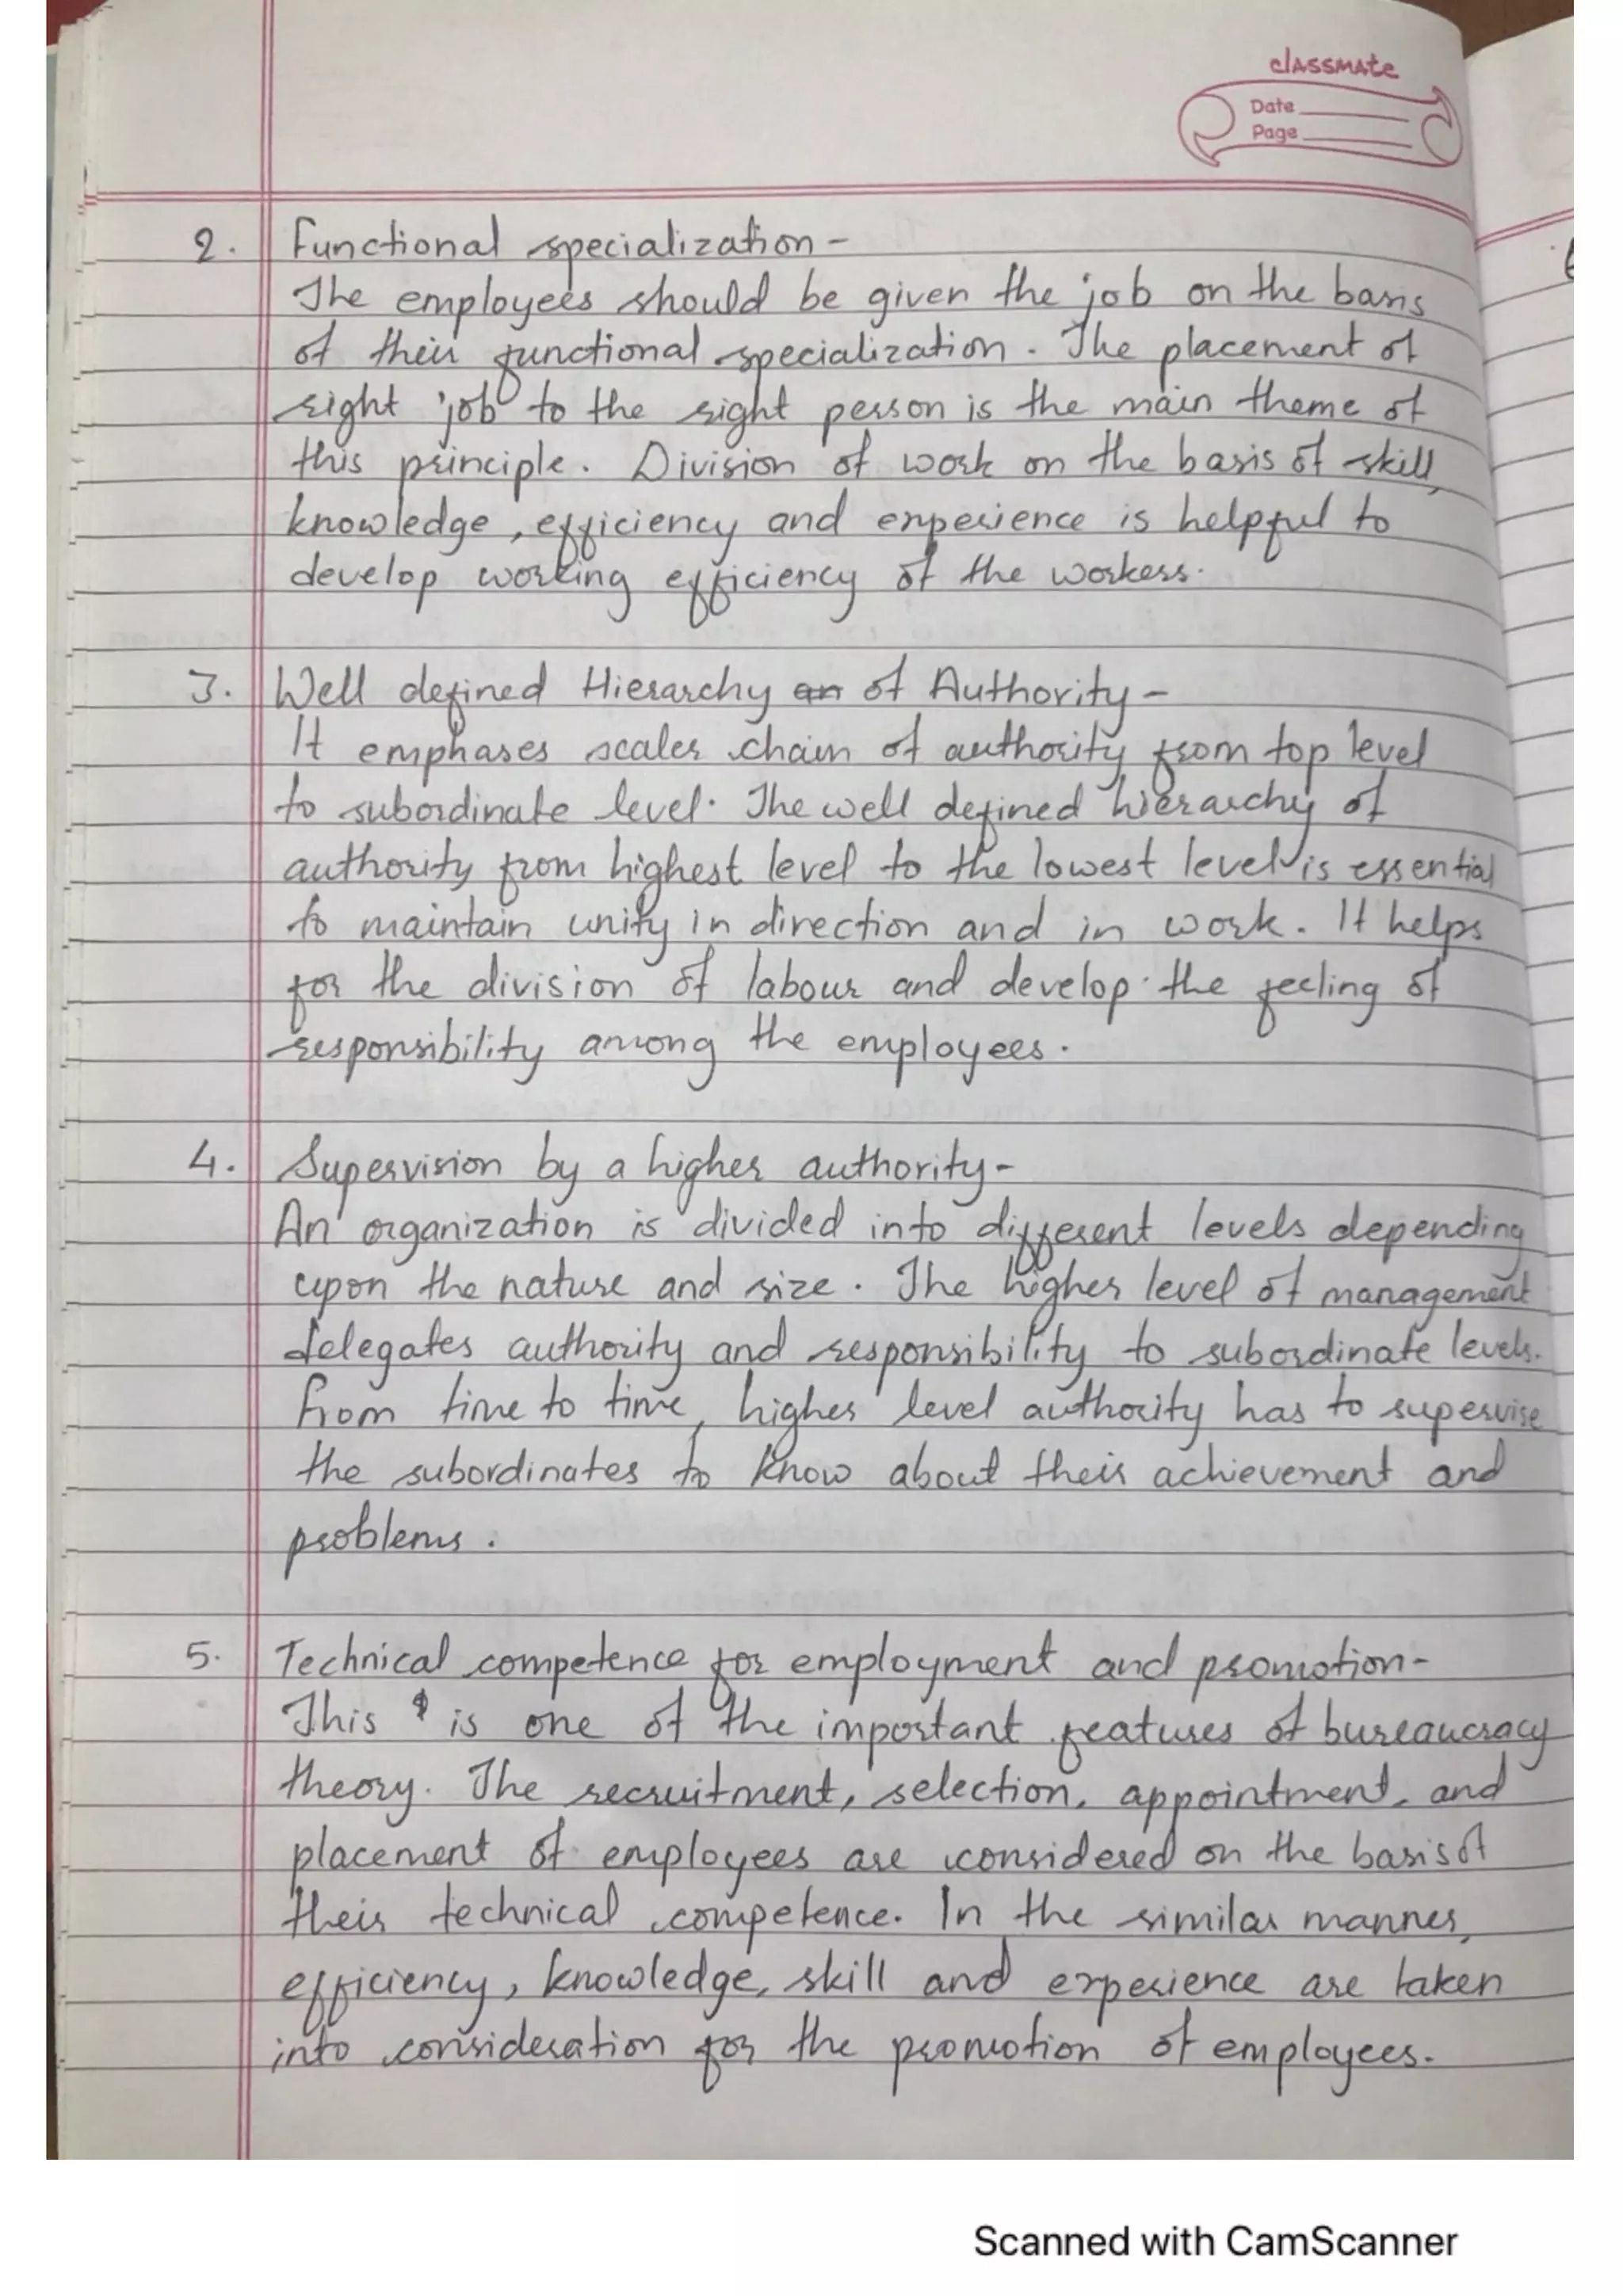 classmate
Date
Page
2. Functional specialization -
The employees should be given the job on the basis
of their functional specialization. The placement of
right job to the right person is the main theme of
this principle. Division of work on the basis of skill,
knowledge, efficiency and experience is helpful to
develop working efficiency of the workers.
3. Well defined Hierarchy an of Authority -
It emphases scaler chain of authority from top level
to subordinate level. The well defined hierarchy of
authority from highest level to the lowest level is essential
to maintain unity in direction and in work. It helps
for the division of labour and develop the feeling of
responsibility among the employees.
4. Supervision by a higher authority -
An organization is divided into different levels depending
upon the nature and size. The higher level of management
delegates authority and responsibility to subordinate levels.
From time to time, higher level authority has to supervise
the subordinates to know about their achievement and
problems.
5. Technical competence for employment and promotion -
This is one of the important features of bureaucracy
theory. The recruitment, selection, appointment, and
placement of employees are considered on the basis of
their technical competence. In the similar manner,
efficiency, knowledge, skill and experience are taken
into consideration for the promotion of employees.
Scanned with CamScanner